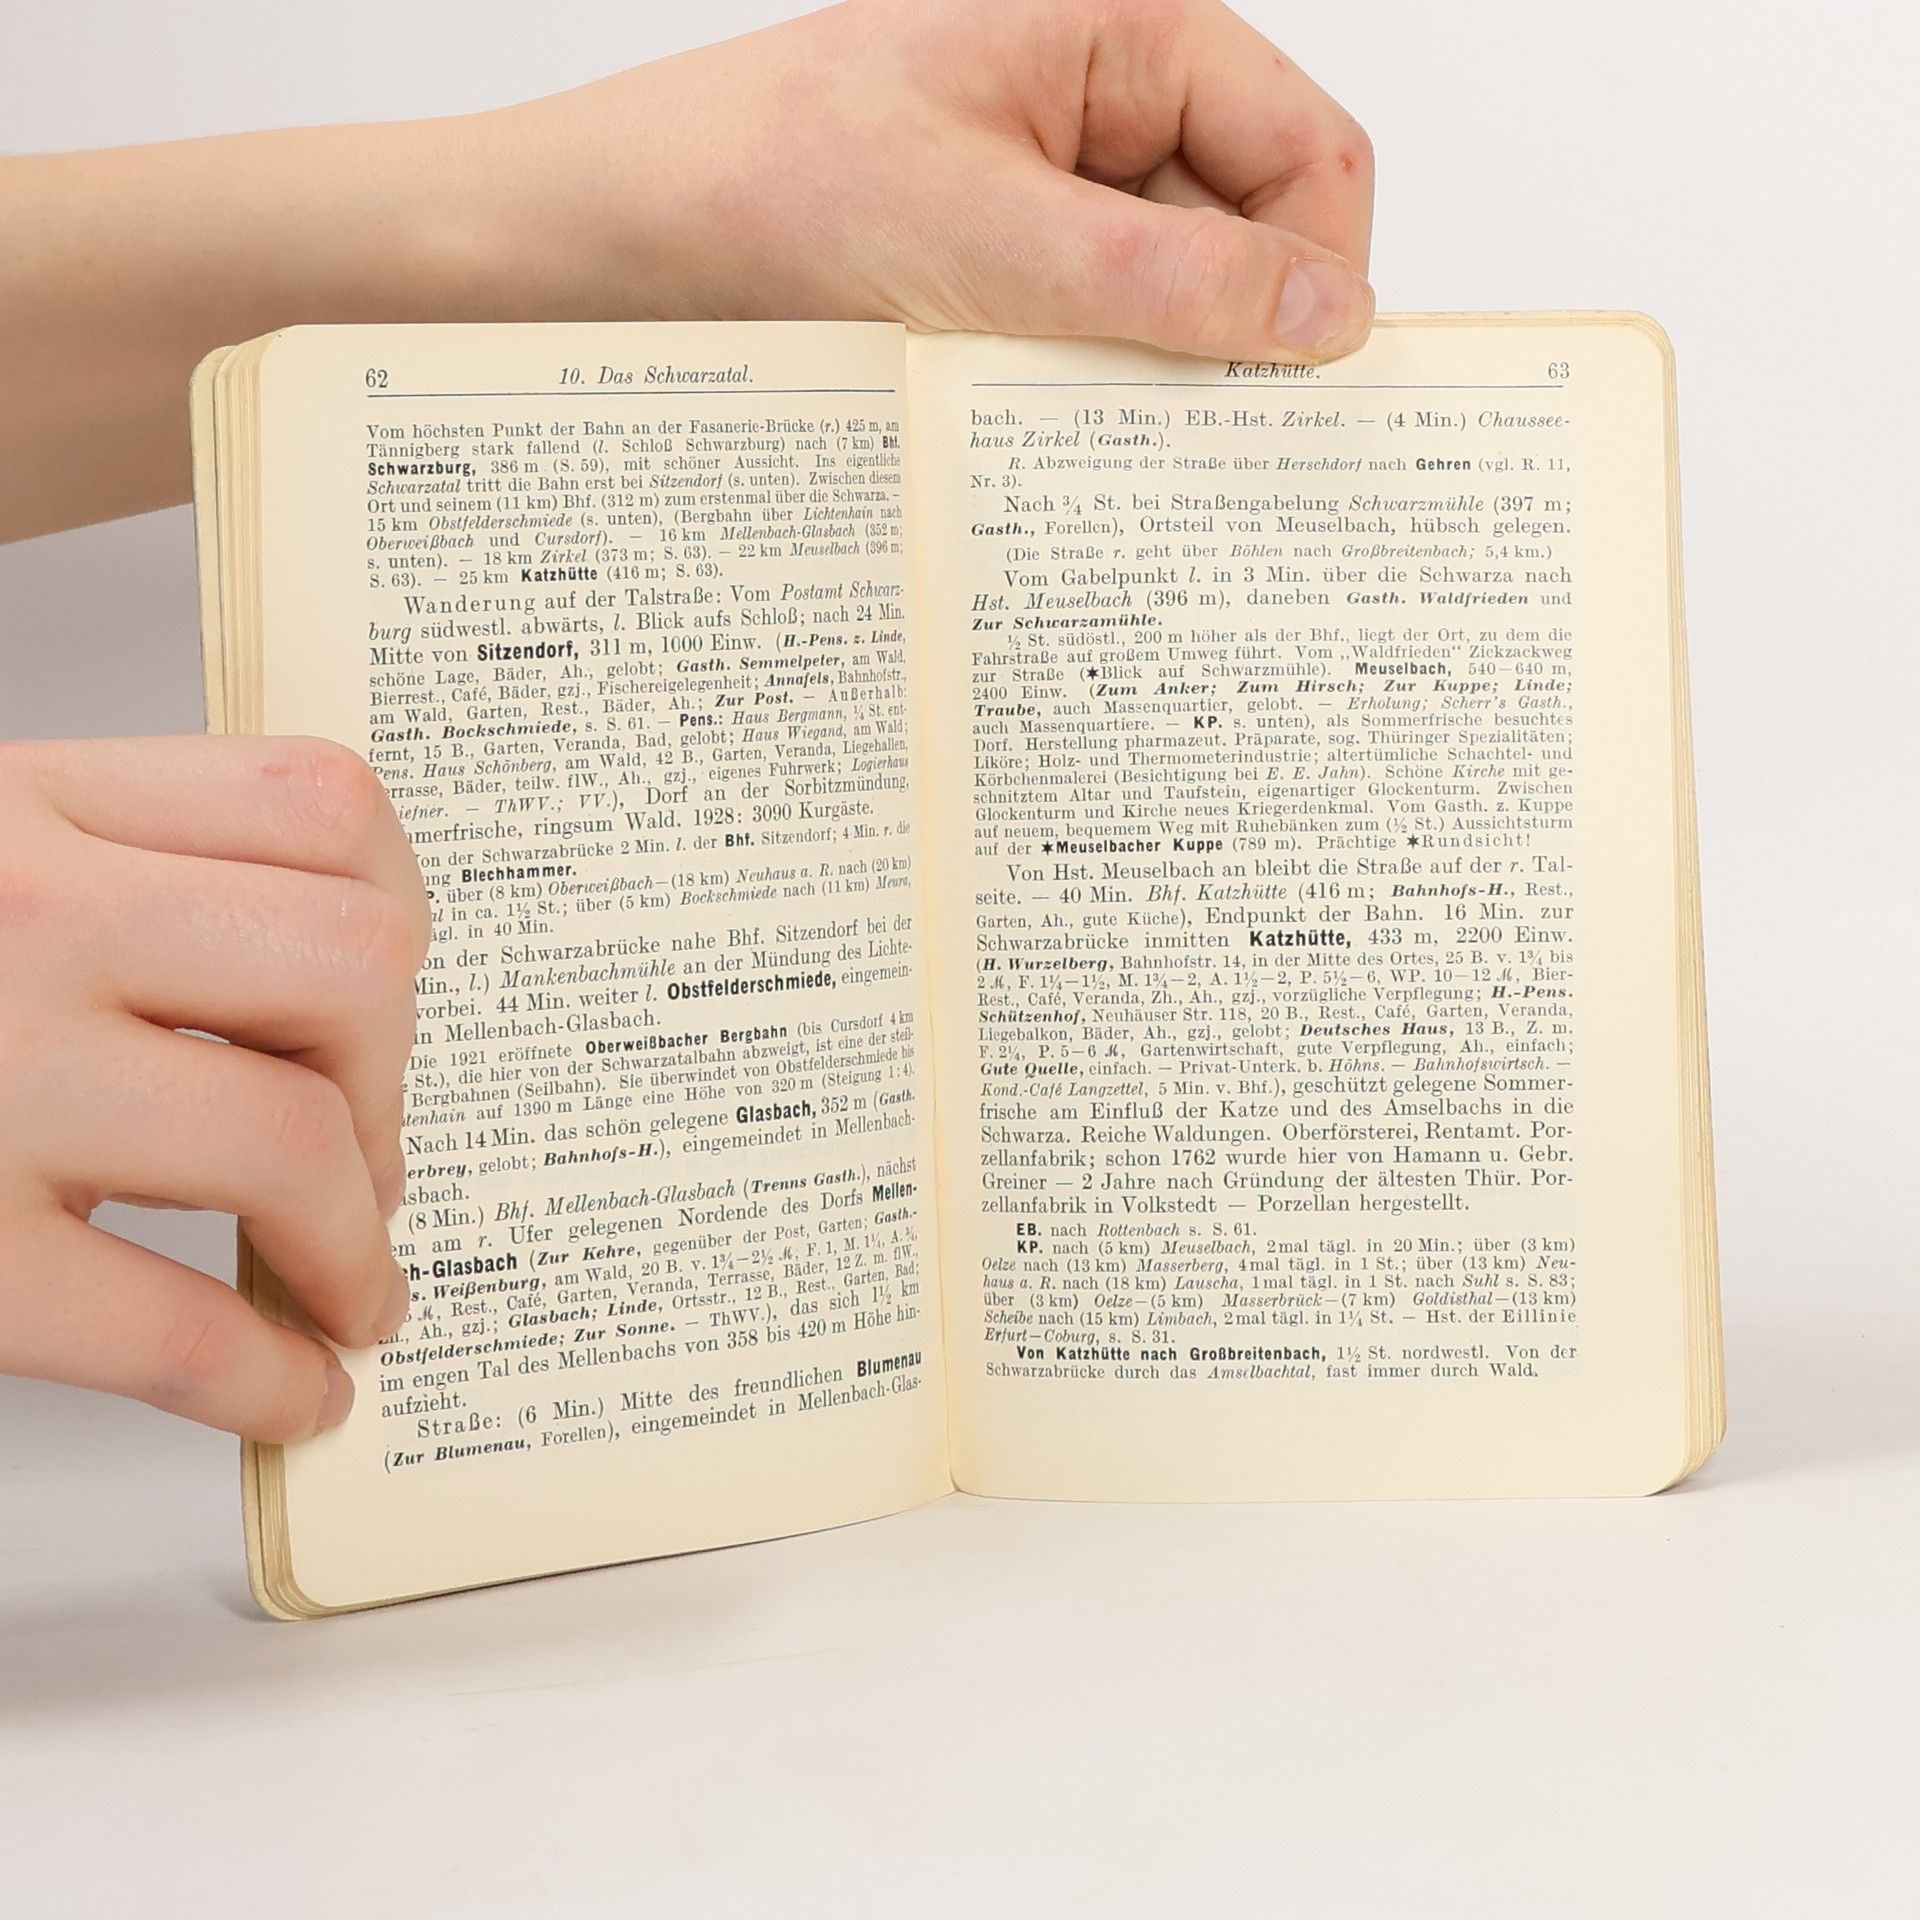 62 10. Das Schwarzatal.
Vom höchsten Punkt der Bahn an der Fasanerie-Brücke (r.) 425 m, am
Tännigberg stark fallend (l. Schloß Schwarzburg) nach (7 km) Bhf.
Schwarzburg, 386 m (S. 59), mit schöner Aussicht. Ins eigentliche
Schwarzatal tritt die Bahn erst bei Sitzendorf (s. unten). Zwischen diesem
Ort und seinem (11 km) Bhf. (312 m) zum erstenmal über die Schwarza. –
15 km Obstfelderschmiede (s. unten), (Bergbahn über Lichtenhain nach
Oberweißbach und Cursdorf). — 16 km Mellenbach-Glasbach (352 m;
s. unten). — 18 km Zirkel (373 m; S. 63). — 22 km Meuselbach (396 m;
S. 63). — 25 km Katzhütte (416 m; S. 63).
Wanderung auf der Talstraße: Vom Postamt Schwarz-
burg südwestl. abwärts, l. Blick aufs Schloß; nach 24 Min.
Mitte von Sitzendorf, 311 m, 1000 Einw. (H.-Pens. z. Linde,
schöne Lage, Bäder, Ah., gelobt; Gasth. Semmelpeter, am Wald,
Bierrest., Café, Bäder, gzj., Fischereigelegenheit; Annafels, Bahnhofstr.,
am Wald, Garten, Rest., Bäder, Ah.; Zur Post. — Außerhalb:
Gasth. Bockschmiede, s. S. 61. — Pens.: Haus Bergmann, ¼ St. ent-
fernt, 15 B., Garten, Veranda, Bad, gelobt; Haus Wiegand, am Wald;
Pens. Haus Schönberg, am Wald, 42 B., Garten, Veranda, Liegehallen,
errasse, Bäder, teilw. flW., Ah., gzj., eigenes Fuhrwerk; Logierhaus
iefner. — ThWV.; VV.), Dorf an der Sorbitzmündung,
merfrische, ringsum Wald. 1928: 3090 Kurgäste.
on der Schwarzabrücke 2 Min. l. der Bhf. Sitzendorf; 4 Min. r. die
ung Blechhammer.
P. über (8 km) Oberweißbach—(18 km) Neuhaus a. R. nach (20 km)
al in ca. 1½ St.; über (5 km) Bockschmiede nach (11 km) Meura,
ägl. in 40 Min.
on der Schwarzabrücke nahe Bhf. Sitzendorf bei der
Min., l.) Mankenbachmühle an der Mündung des Lichte-
vorbei. 44 Min. weiter l. Obstfelderschmiede, eingemein-
in Mellenbach-Glasbach.
Die 1921 eröffnete Oberweißbacher Bergbahn (bis Cursdorf 4 km
St.), die hier von der Schwarzatalbahn abzweigt, ist eine der steil-
Bergbahnen (Seilbahn). Sie überwindet von Obstfelderschmiede bis
tenhain auf 1390 m Länge eine Höhe von 320 m (Steigung 1:4).
Nach 14 Min. das schön gelegene Glasbach, 352 m (Gasth.
erbrey, gelobt; Bahnhofs-H.), eingemeindet in Mellenbach-
asbach.
(8 Min.) Bhf. Mellenbach-Glasbach (Trenns Gasth.), nächst
em am r. Ufer gelegenen Nordende des Dorfs Mellen-
h-Glasbach (Zur Kehre, gegenüber der Post, Garten; Gasth.-
s. Weißenburg, am Wald, 20 B. v. 1¾—2½ ℳ, F. 1, M. 1¼, A. ¾,
ℳ, Rest., Café, Garten, Veranda, Terrasse, Bäder, 12 Z. m. flW.,
Zh., Ah., gzj.; Glasbach; Linde, Ortsstr., 12 B., Rest., Garten, Bad;
Obstfelderschmiede; Zur Sonne. — ThWV.), das sich 1½ km
im engen Tal des Mellenbachs von 358 bis 420 m Höhe hin-
aufzieht.
Straße: (6 Min.) Mitte des freundlichen Blumenau
(Zur Blumenau, Forellen), eingemeindet in Mellenbach-Glas-
Katzhütte. 63
bach. — (13 Min.) EB.-Hst. Zirkel. — (4 Min.) Chaussee-
haus Zirkel (Gasth.).
R. Abzweigung der Straße über Herschdorf nach Gehren (vgl. R. 11,
Nr. 3).
Nach ¾ St. bei Straßengabelung Schwarzmühle (397 m;
Gasth., Forellen), Ortsteil von Meuselbach, hübsch gelegen.
(Die Straße r. geht über Böhlen nach Großbreitenbach; 5,4 km.)
Vom Gabelpunkt l. in 3 Min. über die Schwarza nach
Hst. Meuselbach (396 m), daneben Gasth. Waldfrieden und
Zur Schwarzamühle.
½ St. südöstl., 200 m höher als der Bhf., liegt der Ort, zu dem die
Fahrstraße auf großem Umweg führt. Vom „Waldfrieden“ Zickzackweg
zur Straße (★Blick auf Schwarzmühle). Meuselbach, 540—640 m,
2400 Einw. (Zum Anker; Zum Hirsch; Zur Kuppe; Linde;
Traube, auch Massenquartier, gelobt. — Erholung; Scherr's Gasth.,
auch Massenquartiere. — KP. s. unten), als Sommerfrische besuchtes
Dorf. Herstellung pharmazeut. Präparate, sog. Thüringer Spezialitäten;
Liköre; Holz- und Thermometerindustrie; altertümliche Schachtel- und
Körbchenmalerei (Besichtigung bei E. E. Jahn). Schöne Kirche mit ge-
schnitztem Altar und Taufstein, eigenartiger Glockenturm. Zwischen
Glockenturm und Kirche neues Kriegerdenkmal. Vom Gasth. z. Kuppe
auf neuem, bequemem Weg mit Ruhebänken zum (½ St.) Aussichtsturm
auf der ★Meuselbacher Kuppe (789 m). Prächtige ★Rundsicht!
Von Hst. Meuselbach an bleibt die Straße auf der r. Tal-
seite. — 40 Min. Bhf. Katzhütte (416 m; Bahnhofs-H., Rest.,
Garten, Ah., gute Küche), Endpunkt der Bahn. 16 Min. zur
Schwarzabrücke inmitten Katzhütte, 433 m, 2200 Einw.
(H. Wurzelberg, Bahnhofstr. 14, in der Mitte des Ortes, 25 B. v. 1¾ bis
2 ℳ, F. 1¼—1½, M. 1¾—2, A. 1½—2, P. 5½—6, WP. 10—12 ℳ, Bier-
Rest., Café, Veranda, Zh., Ah., gzj., vorzügliche Verpflegung; H.-Pens.
Schützenhof, Neuhäuser Str. 118, 20 B., Rest., Café, Garten, Veranda,
Liegebalkon, Bäder, Ah., gzj., gelobt; Deutsches Haus, 13 B., Z. m.
F. 2¼, P. 5—6 ℳ, Gartenwirtschaft, gute Verpflegung, Ah., einfach;
Gute Quelle, einfach. — Privat-Unterk. b. Höhns. — Bahnhofswirtsch. —
Kond.-Café Langzettel, 5 Min. v. Bhf.), geschützt gelegene Sommer-
frische am Einfluß der Katze und des Amselbachs in die
Schwarza. Reiche Waldungen. Oberförsterei, Rentamt. Por-
zellanfabrik; schon 1762 wurde hier von Hamann u. Gebr.
Greiner — 2 Jahre nach Gründung der ältesten Thür. Por-
zellanfabrik in Volkstedt — Porzellan hergestellt.
EB. nach Rottenbach s. S. 61.
KP. nach (5 km) Meuselbach, 2mal tägl. in 20 Min.; über (3 km)
Oelze nach (13 km) Masserberg, 4mal tägl. in 1 St.; über (13 km) Neu-
haus a. R. nach (18 km) Lauscha, 1mal tägl. in 1 St. nach Suhl s. S. 83;
über (3 km) Oelze—(5 km) Masserbrück—(7 km) Goldisthal—(13 km)
Scheibe nach (15 km) Limbach, 2mal tägl. in 1¼ St. — Hst. der Eillinie
Erfurt—Coburg, s. S. 31.
Von Katzhütte nach Großbreitenbach, 1½ St. nordwestl. Von der
Schwarzabrücke durch das Amselbachtal, fast immer durch Wald.